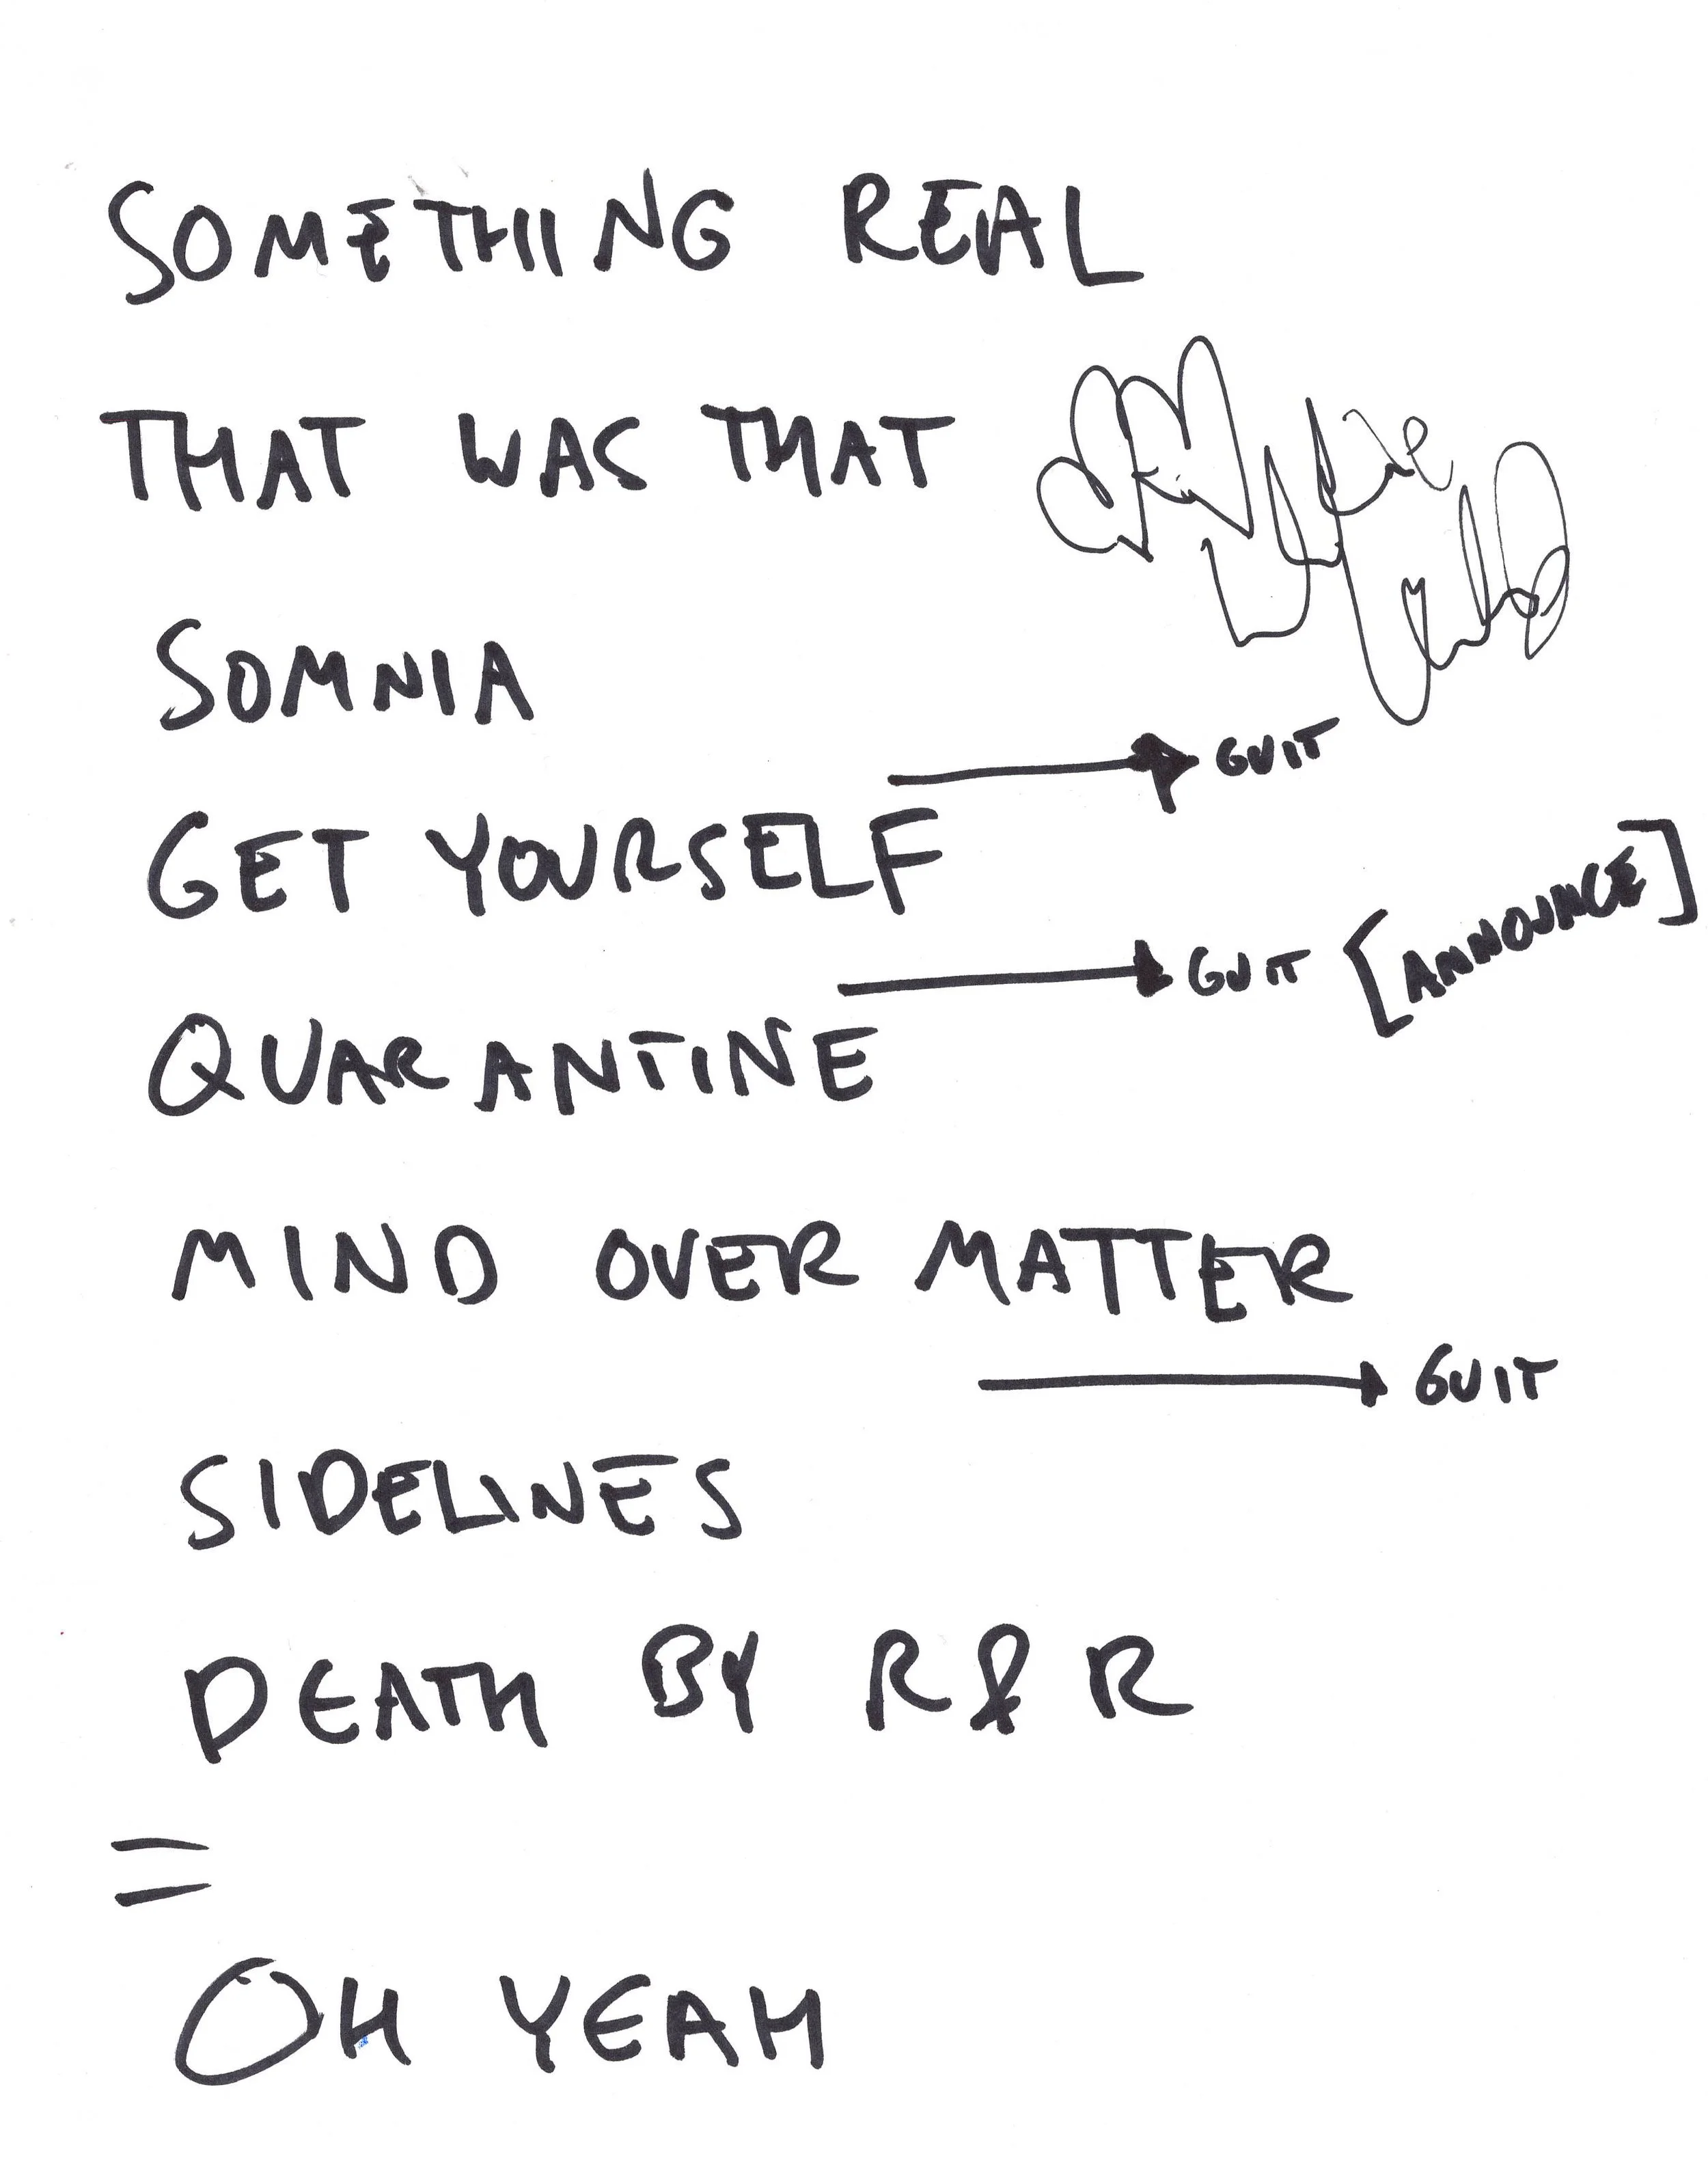 SOMETHING REAL
THAT WAS THAT
SOMNIA
→ GUIT
GET YOURSELF
→ GUIT [ANNOUNCE]
QUARANTINE
MIND OVER MATTER
→ GUIT
SIDELINES
DEATH BY R & R
=
OH YEAH